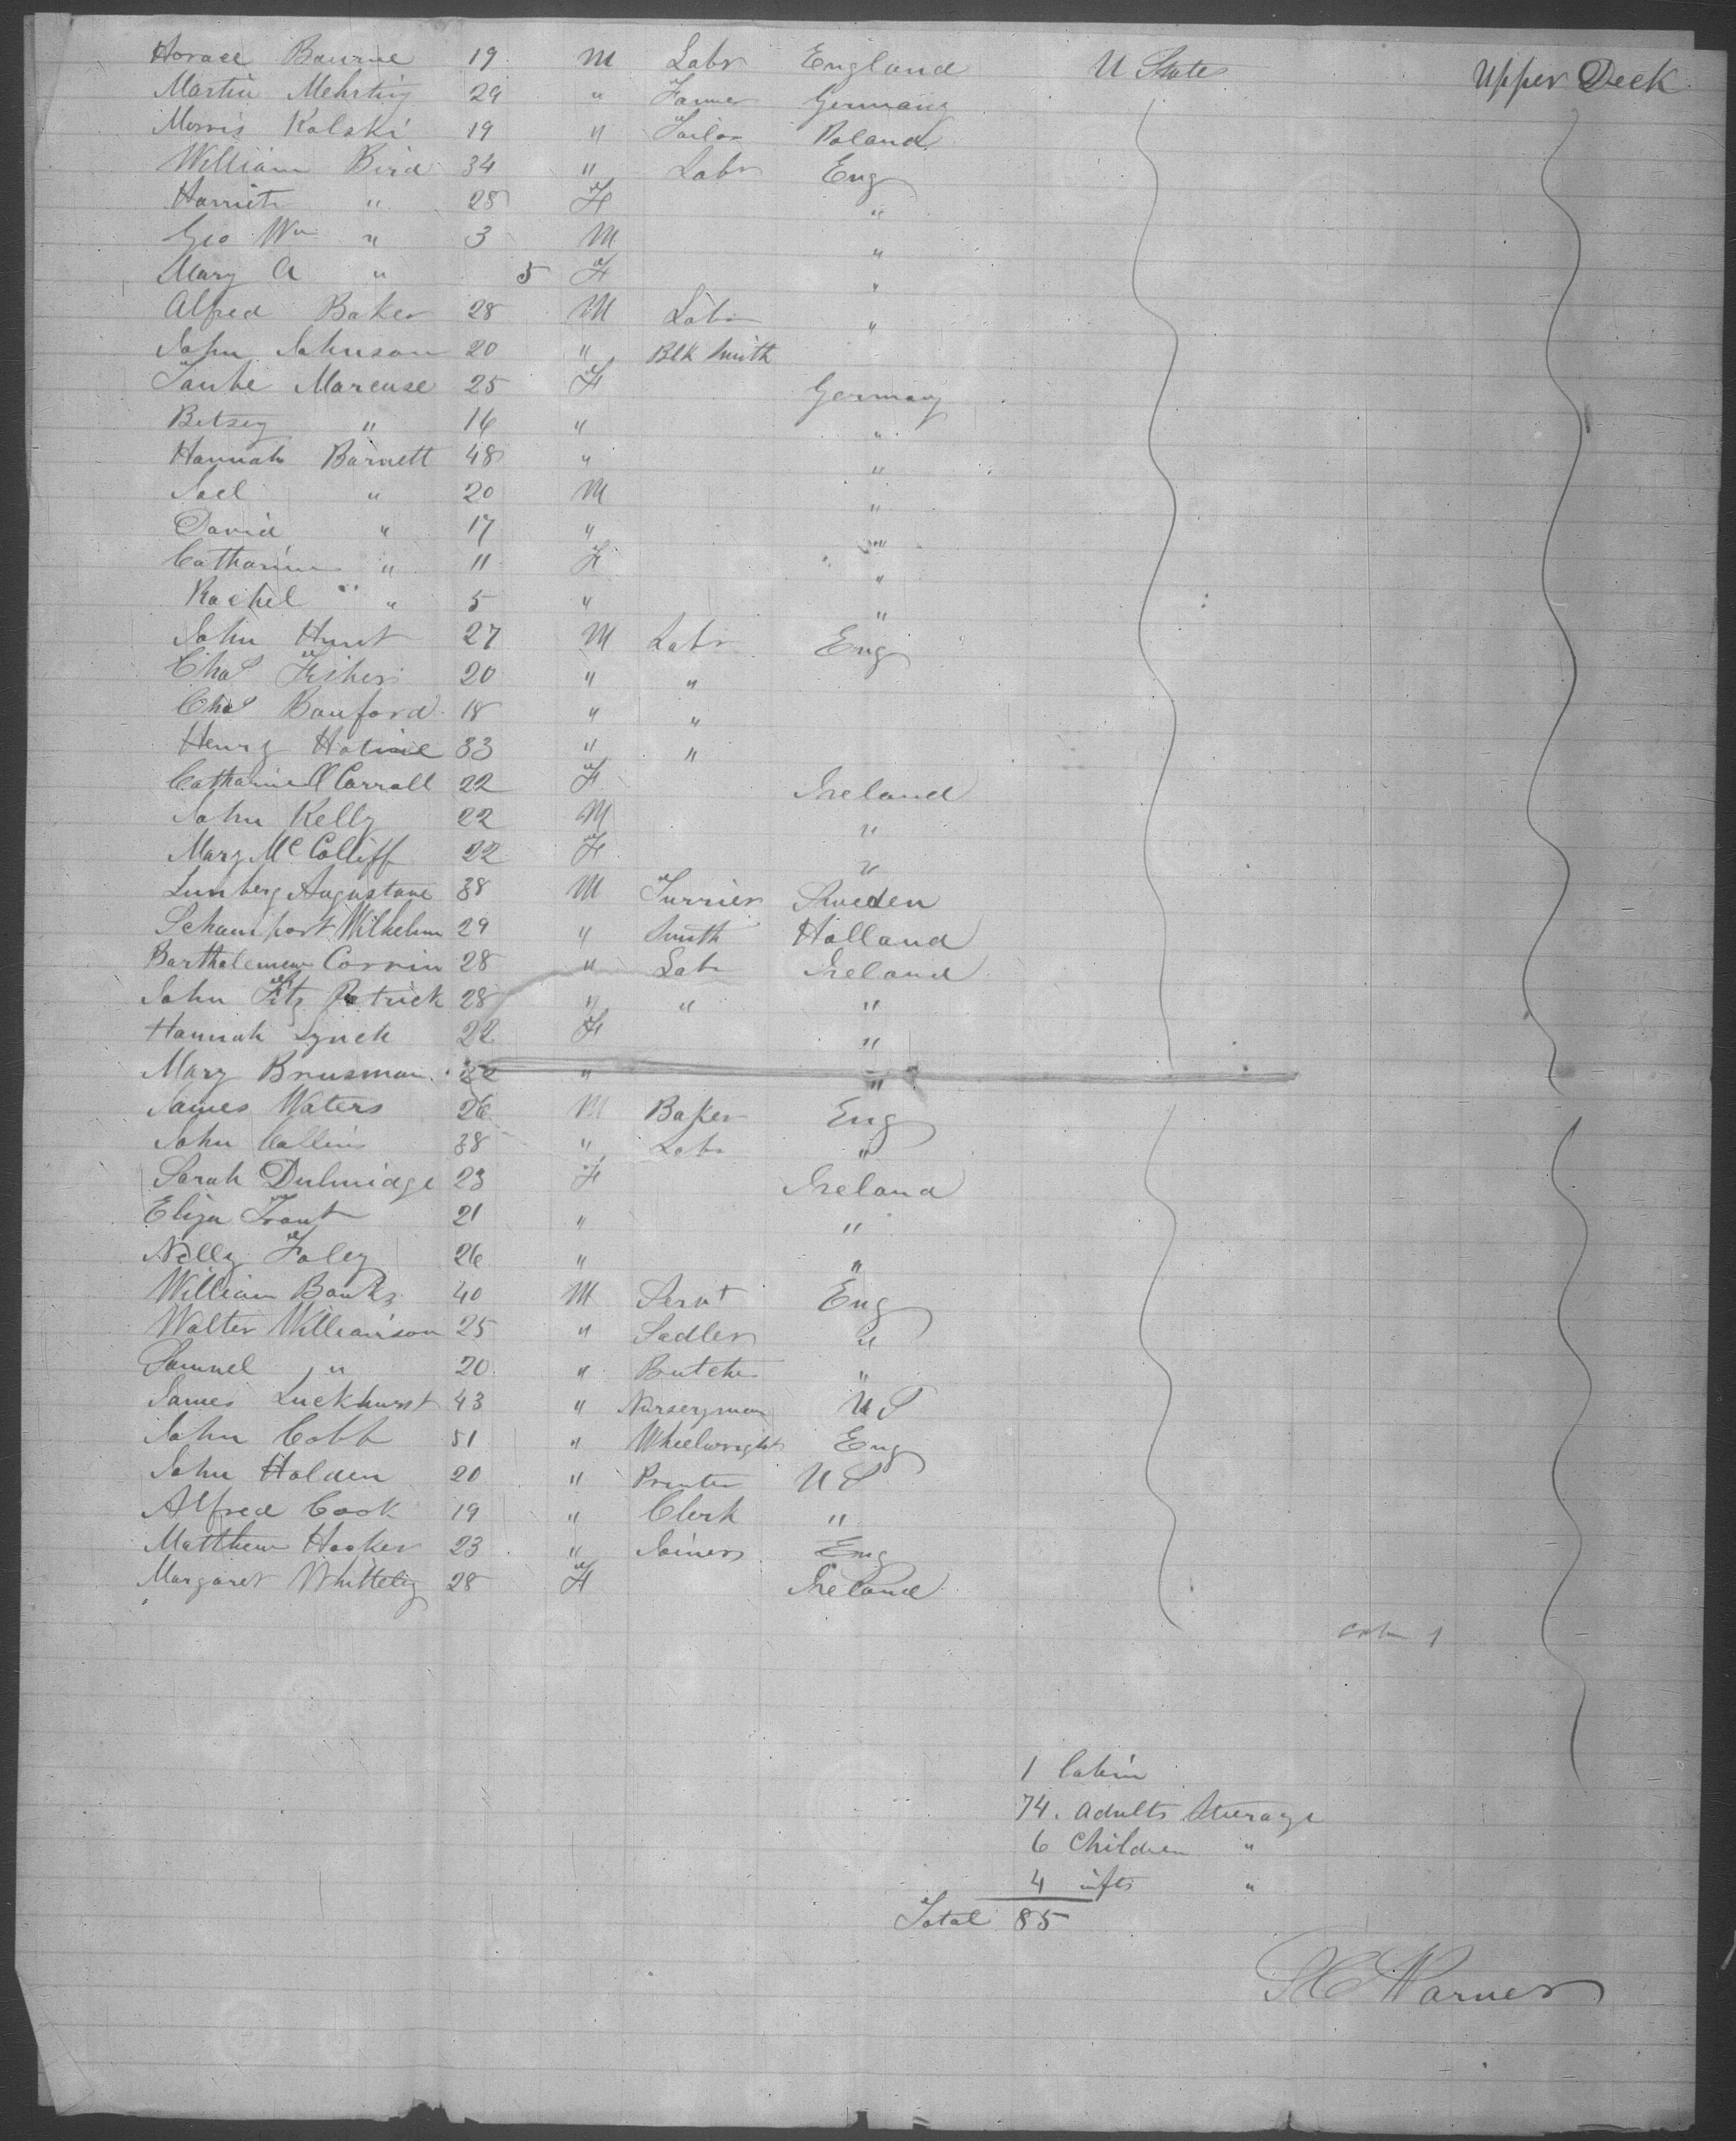 Horace Bourne 19 M Labr England U States Upper Deck
Martin Mehrtig 29 " Farmer Germany
Morris Kolski 19 " Tailor Poland
William Bird 34 " Labr Eng
Harriet " 28 F "
Geo Wm " 3 M "
Mary A " 5 F "
Alfred Baker 28 M Labr "
John Johnson 20 " Blk Smith
Taube Marcuse 25 F Germany
Betsey " 16 " "
Hannah Barnett 48 " "
Joel " 20 M "
David " 17 " "
Catharine " 11 F "
Rachel " 5 " "
John Hunt 27 M Labr Eng
Chas Fisher 20 " "
Chas Banford 18 " "
Henry 33 " "
Catharine Carroll 22 F Ireland
John Kelly 22 M "
Mary Mc Colliff 22 F "
Lunberg Augustave 38 M Furrier Sweden
Wilhelm 29 " Smith Holland
Bartholemew Corvin 28 " Labr Ireland
John Fitz Patrick 28 " " "
Hannah Lynch 22 F "
Mary Brusman 22 " "
James Waters 26 M Baker Eng
John Collins 38 " Labr "
Sarah Dulmidge 23 F Ireland
Eliza Trant 21 " "
Nelly Foley 26 " "
William Banks 40 M Servt Eng
Walter Williamson 25 " Sadler "
Samuel " 20 " Butcher "
James Luckhurst 43 " Nurseryman U S
John Cobb 51 " Wheelwright Eng
John Holden 20 " Printer U S
Alfred Cook 19 " Clerk "
Matthew Hooker 23 " Joiner Eng
Margaret Whitteley 28 F Ireland
1 Cabin
74. Adults Steerage
6 Children "
4 infts "
Total 85
Warner